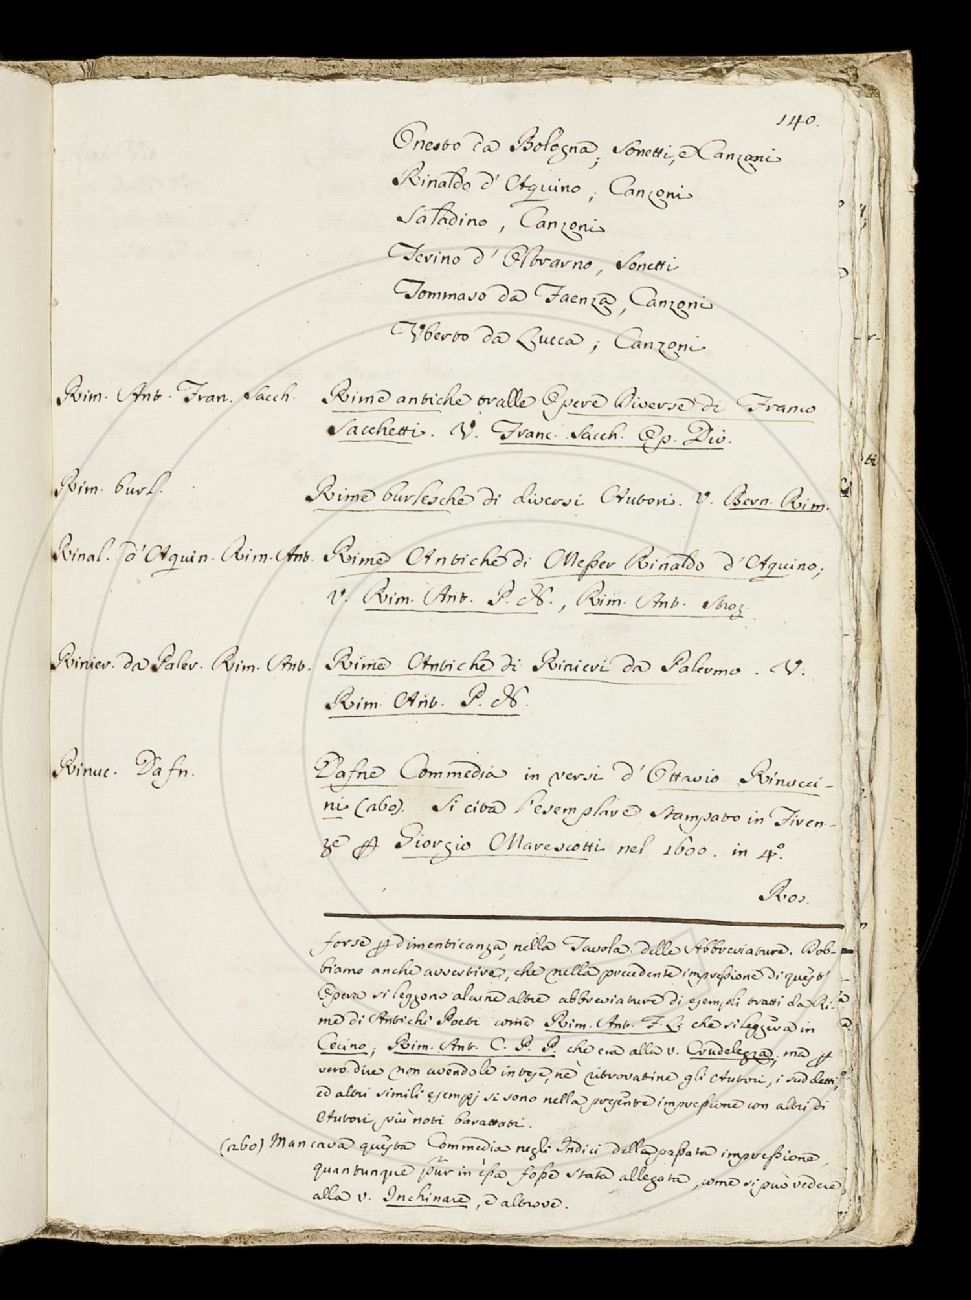 140.
Onesto da Bologna; Sonetti, e Canzoni
Rinaldo d'Aquino; Canzoni
Saladino, Canzoni
Terino d'Oltrarno, Sonetti
Tommaso da Faenza, Canzoni
Uberto da Lucca; Canzoni
Rim. Ant. Fran. Sacch. Rime antiche tralle Opere Diverse di Franco
Sacchetti. V. Franc. Sacch. Op. Div.
Rim. burl. Rime burlesche di diversi Autori. V. Bern. Rim.
Rinal. d'Aquin. Rim. Ant. Rime Antiche di Messer Rinaldo d'Aquino;
V. Rim. Ant. P. N., Rim. Ant. Stroz.
Rinier. da Paler. Rim. Ant. Rime Antiche di Rinieri da Palermo. V.
Rim. Ant. P. N.
Rinuc. Dafn. Dafne Commedia in versi d'Ottavio Rinucci-
ni (260). Si cita l'esemplare stampato in Firen-
ze p Giorgio Marescotti nel 1600. in 4°.
Ros.
forse p dimenticanza, nella Tavola delle Abbreviature. Dob-
biamo anche avvertire, che nella precedente impressione di quest'
Opera si leggono alcune altre abbreviature di esempli tratti da Ri-
me di Antichi Poeti come Rim. Ant. F. L. che si leggeva in
Cecino; Rim. Ant. C. P. P. che era alla v. Crudelezza; ma p
vero dire non avendole intese, nè ritrovatine gli Autori, i suddetti,
ed altri simili esempj si sono nella presente impressione con altri di
Autori più noti barattati.
(260) Mancava questa Commedia negli Indici della passata impressione,
quantunque pur in essa fosse stata allegata, come si può vedere
alla v. Inchinare, e altrove.